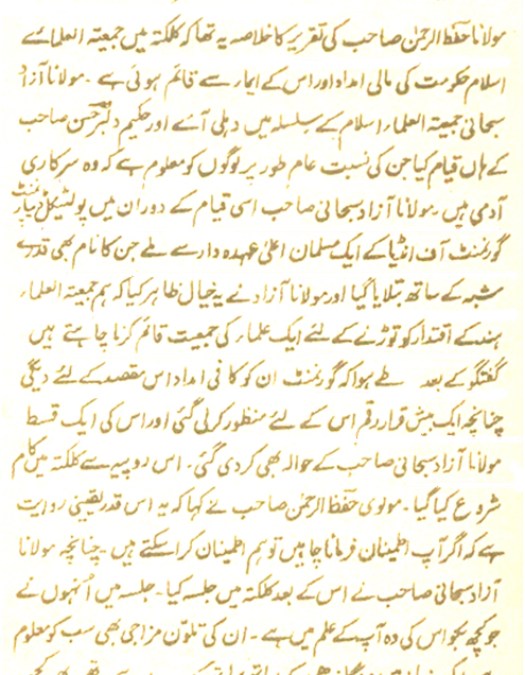 مولانا حفظ الرحمٰن صاحب کی تقریر کا خلاصہ یہ تھا کہ کلکتہ میں جمعیتہ العلمائے
اسلام حکومت کی مالی امداد اور اس کے ایما سے قائم ہوئی ہے ۔ مولانا آزاد
سبحانی جمیعتہ العلماء اسلام کے سلسلہ میں دہلی آئے اور حکیم دلبر حسن صاحب
کے ہاں قیام کیا جن کی نسبت عام طور پر لوگوں کو معلوم ہے کہ وہ سرکاری
آدمی ہیں ۔ مولانا آزاد سبحانی صاحب اسی قیام کے دوران میں پولٹیکل ڈیپارٹمنٹ
گورنمنٹ آف انڈیا کے ایک مسلمان اعلیٰ عہدہ دار سے ملے جن کا نام بھی قدرے
شبہ کے ساتھ بتلایا گیا اور مولانا آزاد نے یہ خیال ظاہر کیا کہ ہم جمعیتہ العلماء
ہند کے اقتدار کو توڑنے کے لئے ایک علماء کی جمعیت قائم کرنا چاہتے ہیں
گفتگو کے بعد طے ہوا کہ گورنمنٹ ان کو کافی امداد اس مقصد کے لئے دیگی
چنانچہ ایک بیش قرار رقم اس کے لئے منظور کر لی گئی اور اس کی ایک قسط
مولانا آزاد سبحانی صاحب کے حوالہ بھی کر دی گئی ۔ اس روپیہ سے کلکتہ میں کام
شروع کیا گیا ۔ مولوی حفظ الرحمٰن صاحب نے کہا کہ یہ اس قدر یقینی روایت
ہے کہ اگر آپ اطمینان فرمانا چاہیں تو ہم اطمینان کرا سکتے ہیں ۔ چنانچہ مولانا
آزاد سبحانی صاحب نے اس کے بعد کلکتہ میں جلسہ کیا ۔ جلسہ میں انہوں نے
جو کچھ ہجو اس کی وہ آپ کے علم میں ہے ۔ ان کی تلون مزاجی بھی سب کو معلوم